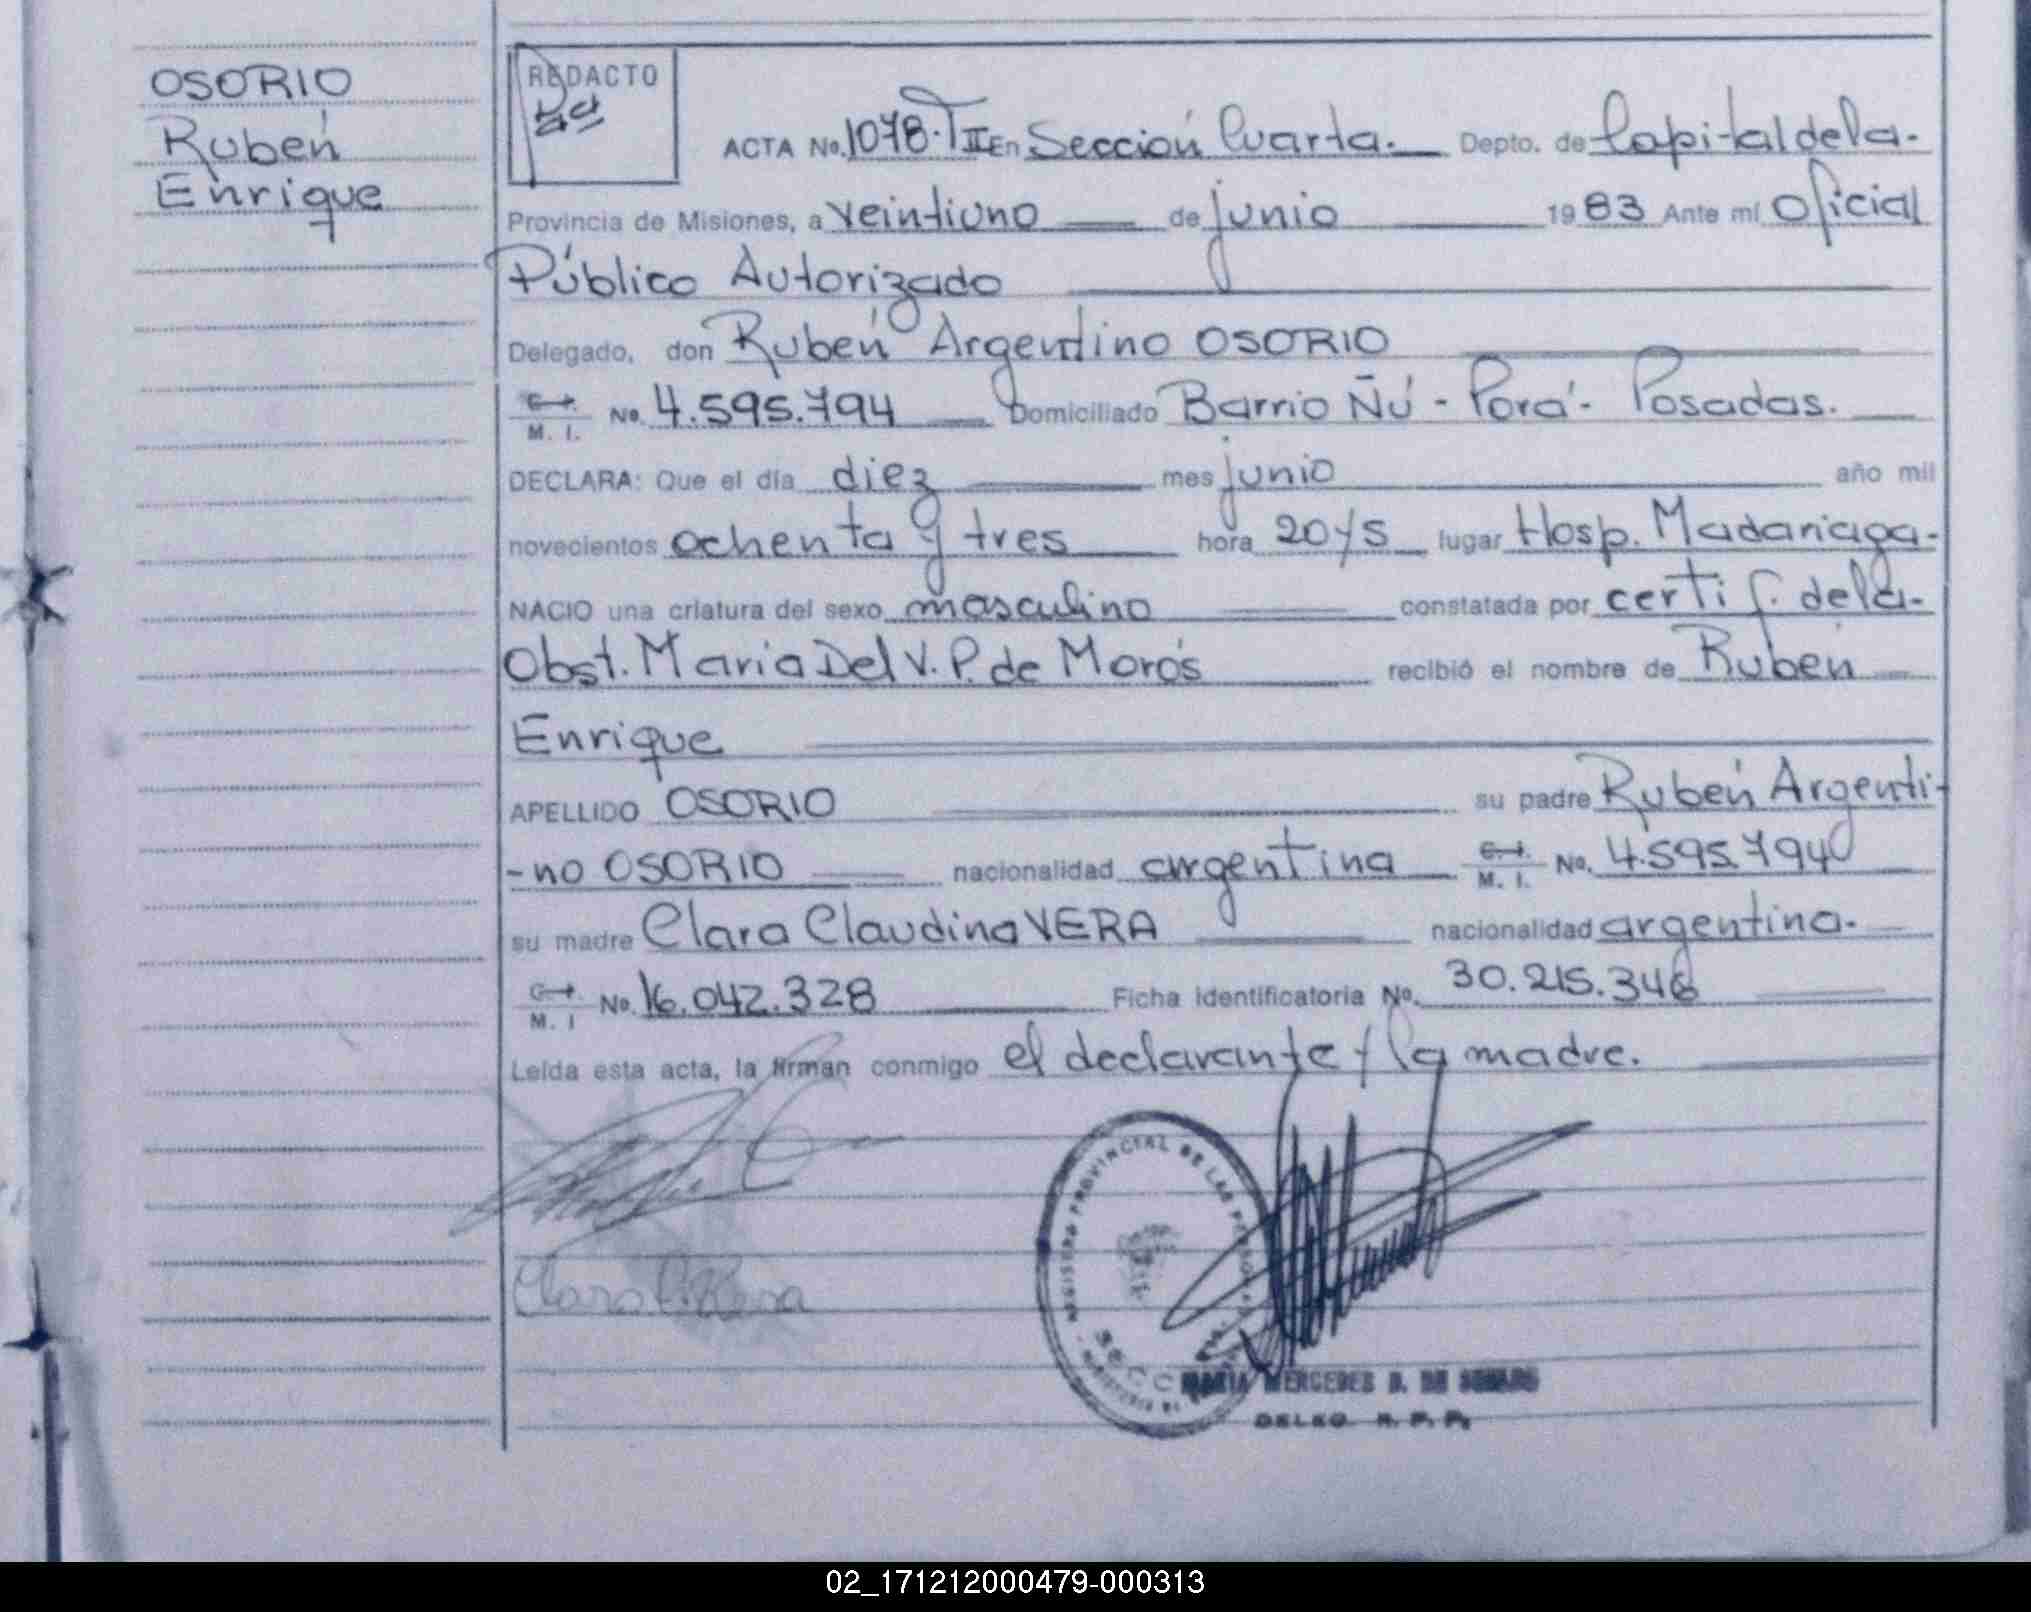 OSORIO
Rubén
Enrique
REDACTO
ACTA No. 1078·TII En Sección Cuarta. Depto. de Capital de la-
Provincia de Misiones, a veintiuno de junio 1983 Ante mí Oficial
Público Autorizado
Delegado, don Rubén Argentino OSORIO
C. I. M. I. No. 4.595.794 Domiciliado Barrio Ñú - Porá - Posadas.
DECLARA: Que el día diez mes junio año mil
novecientos ochenta y tres hora 20y5 lugar Hosp. Madariaga-
NACIO una criatura del sexo masculino constatada por certif. de la-
Obst. Maria Del V. P. de Morós recibió el nombre de Rubén
Enrique
APELLIDO OSORIO su padre Rubén Argenti-
-no OSORIO nacionalidad argentina C. I. M. I. No. 4.595.794
su madre Clara Claudina VERA nacionalidad argentina.
C. I. M. I No. 16.042.328 Ficha identificatoria No. 30.215.346
Leída esta acta, la firman conmigo el declarante y la madre.
Clara C. Vera
REGISTRO PROVINCIAL DE LAS PERSONAS
MARIA MERCEDES D. DE
DELEG. R. P. P.
02_171212000479-000313